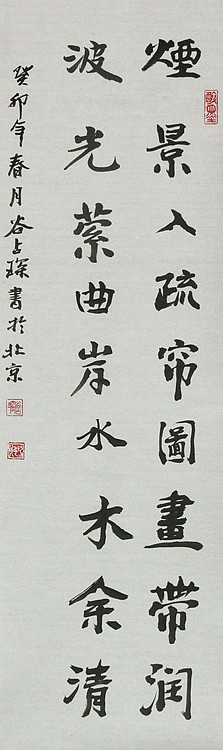 煙景入疏帘圖畫帶润
波光縈曲岸水木余清
癸卯年春月谷占琛書於北京